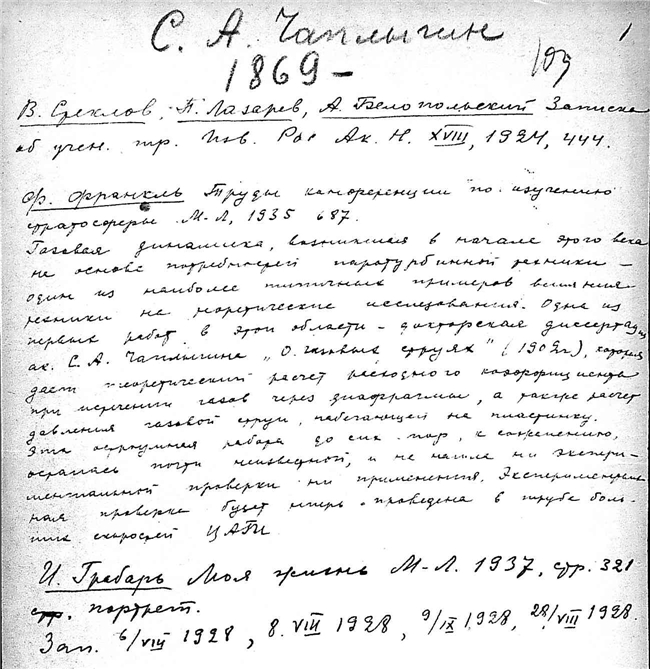 С. А. Чаплыгин 1
1869 – 109
В. Стеклов, П. Лазарев, А. Белопольский Записка
об учен. тр. Изв. Рос Ак. Н. XVIII, 1924, 444.
Ф. Франкль Труды конференции по изучению
стратосферы М-Л, 1935 687.
Газовая динамика, возникшая в начале этого века
на основе потребностей паротурбинной техники –
один из наиболее типичных примеров влияния
техники на теоретические исследования. Одна из
первых работ в этой области – докторская диссертация
ак. С. А. Чаплыгина „О газовых струях" (1902г), которая
дает теоретический расчет расходного коэффициента
при истечении газов через диафрагмы, а также расчет
давления газовой струи, набегающей на пластинку.
Эта остроумная работа до сих пор, к сожалению,
осталась почти неизвестной, и не нашла ни экспери-
ментальной проверки ни применения. Эксперименталь-
ная проверка будет теперь проведена в трубе боль-
ших скоростей ЦАГИ
И. Грабарь Моя жизнь М-Л. 1937, стр. 321
стр. портрет.
Зап. 6/VIII 1928, 8. VIII 1928, 9/IX 1928, 28/VIII 1928.